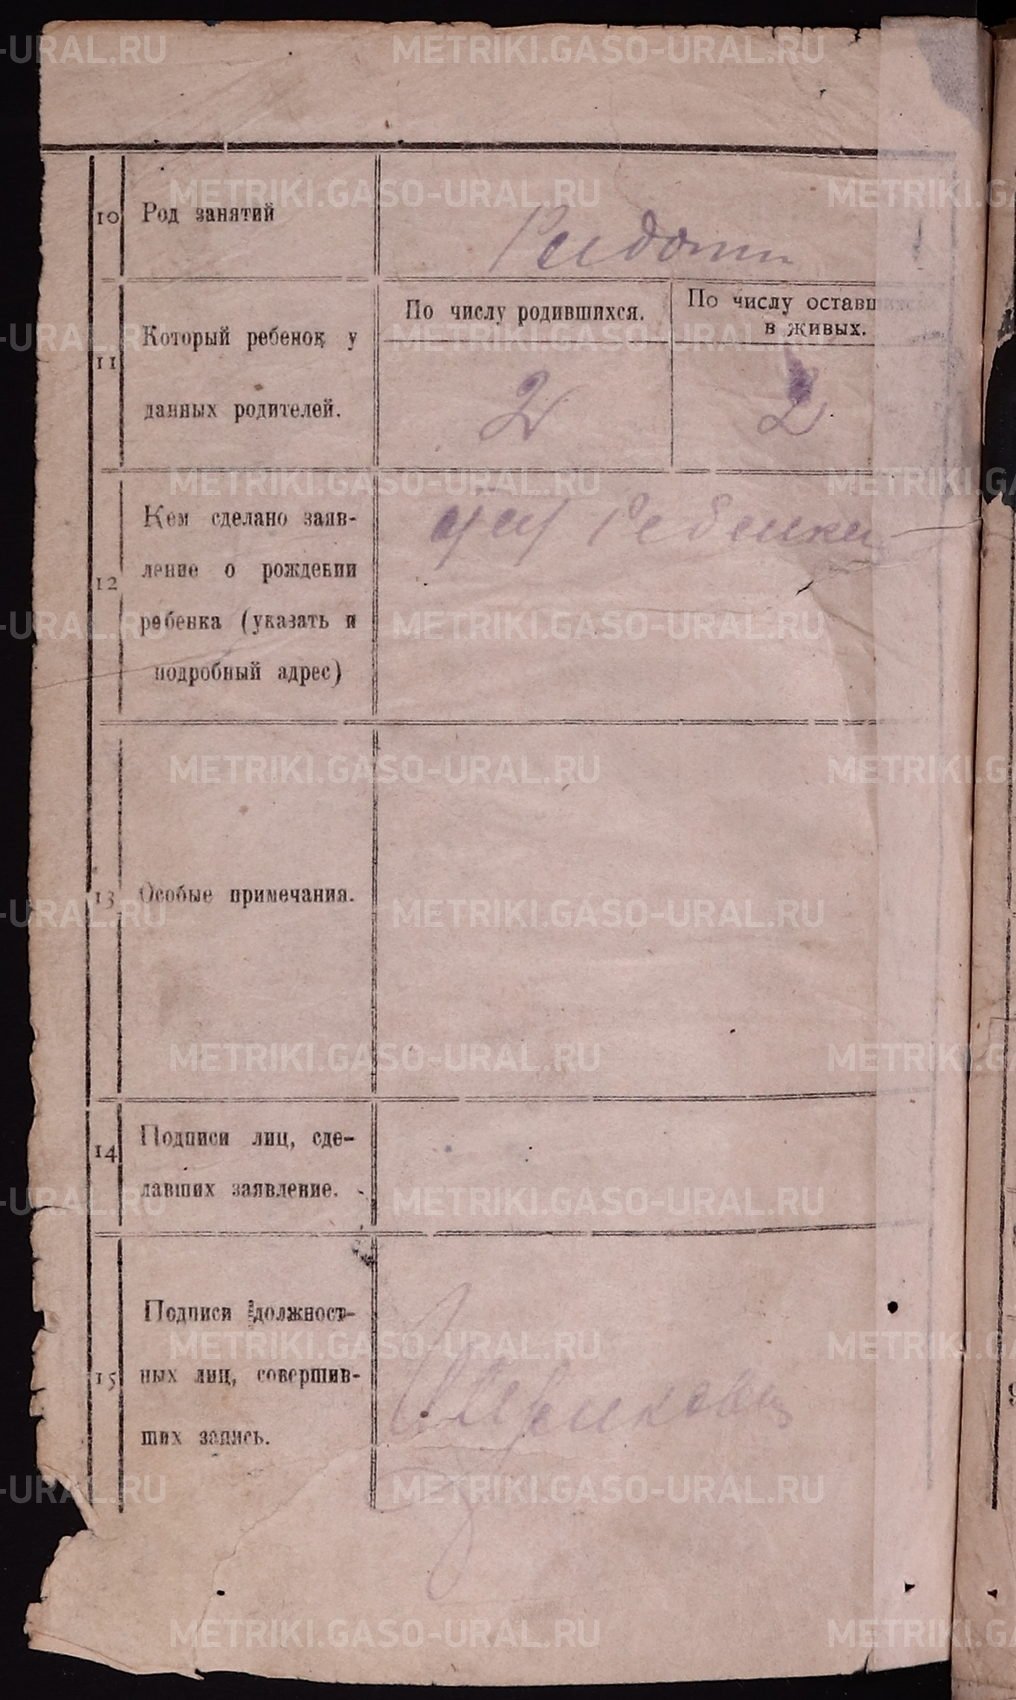 10 Род занятий
11 Который ребенок у
данных родителей.
По числу родившихся.
По числу оставшихся
в живых.
2
2
12 Кем сделано заяв-
ление о рождении
ребенка (указать и
подробный адрес)
Ребенка
13 Особые примечания.
14 Подписи лиц, сде-
лавших заявление.
15 Подписи должност-
ных лиц, совершив-
ших запись.
METRIKI.GASO-URAL.RU